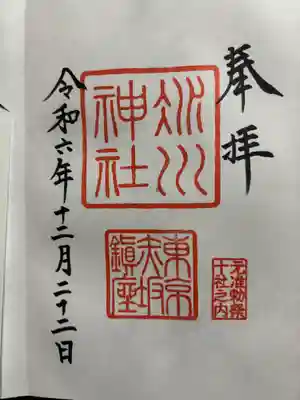 奉拝
氷川神社
東京赤坂鎮座
元准勅祭十社之内
令和六年十二月二十二日